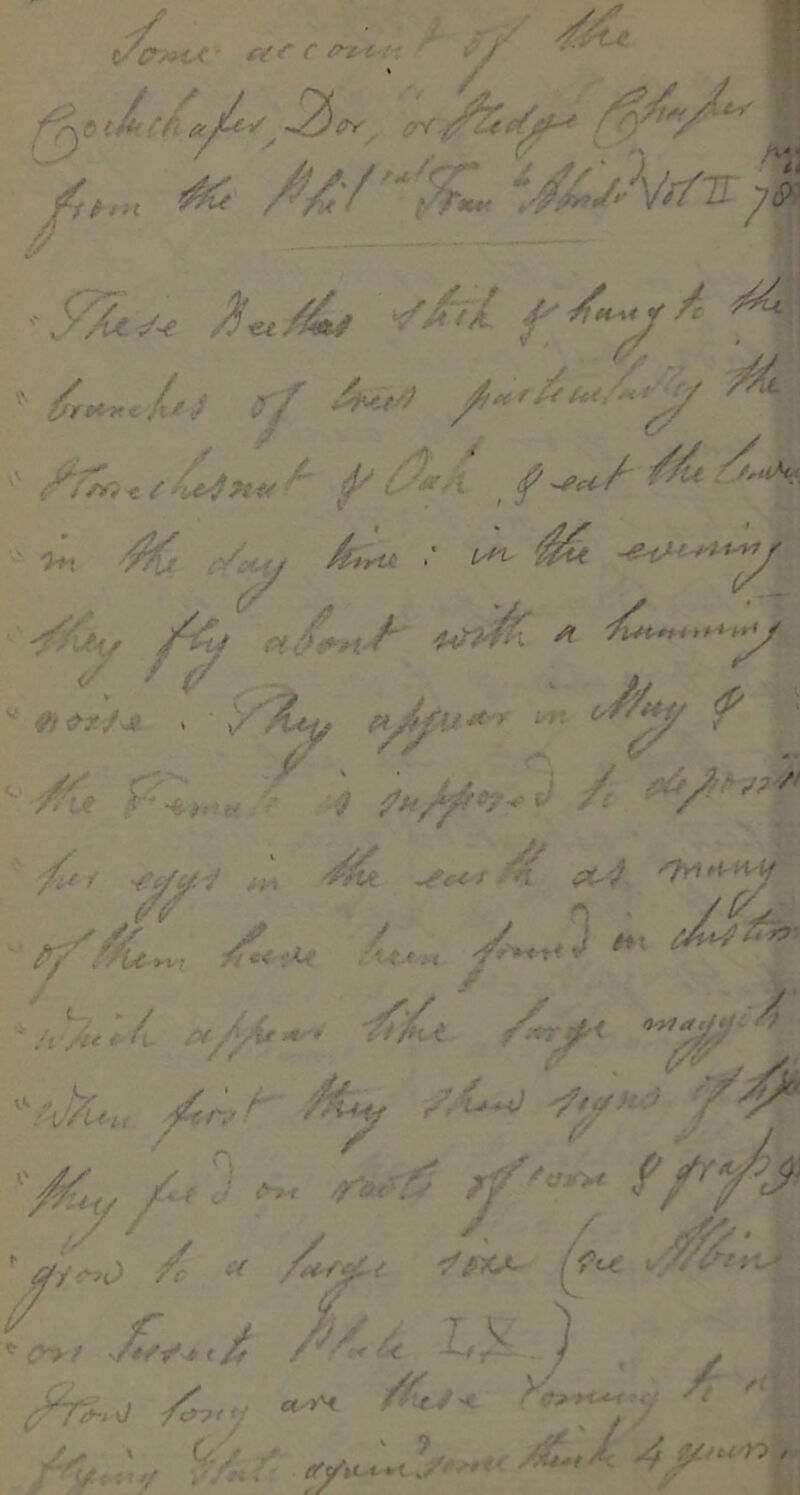 Some account of the
Cockchafer Dor, or Hedge Chafer
from the Phil. Tran
"These Beetles stick & hang to the
" branches of trees particularly the
" & Oak & eat the leaves
" in the day time: in the evening
" they fly about with a humming
" noise. They appear in May &
" the Female is supposed to deposit
" her eggs in the earth as many
" of them have been found in
" which appear like large maggots
" When first they
" They feed on roots of corn & grass
" grow to a large size (see Albin
" on Insects Plate LX)
How long are these to
flying again? some think 4 years,